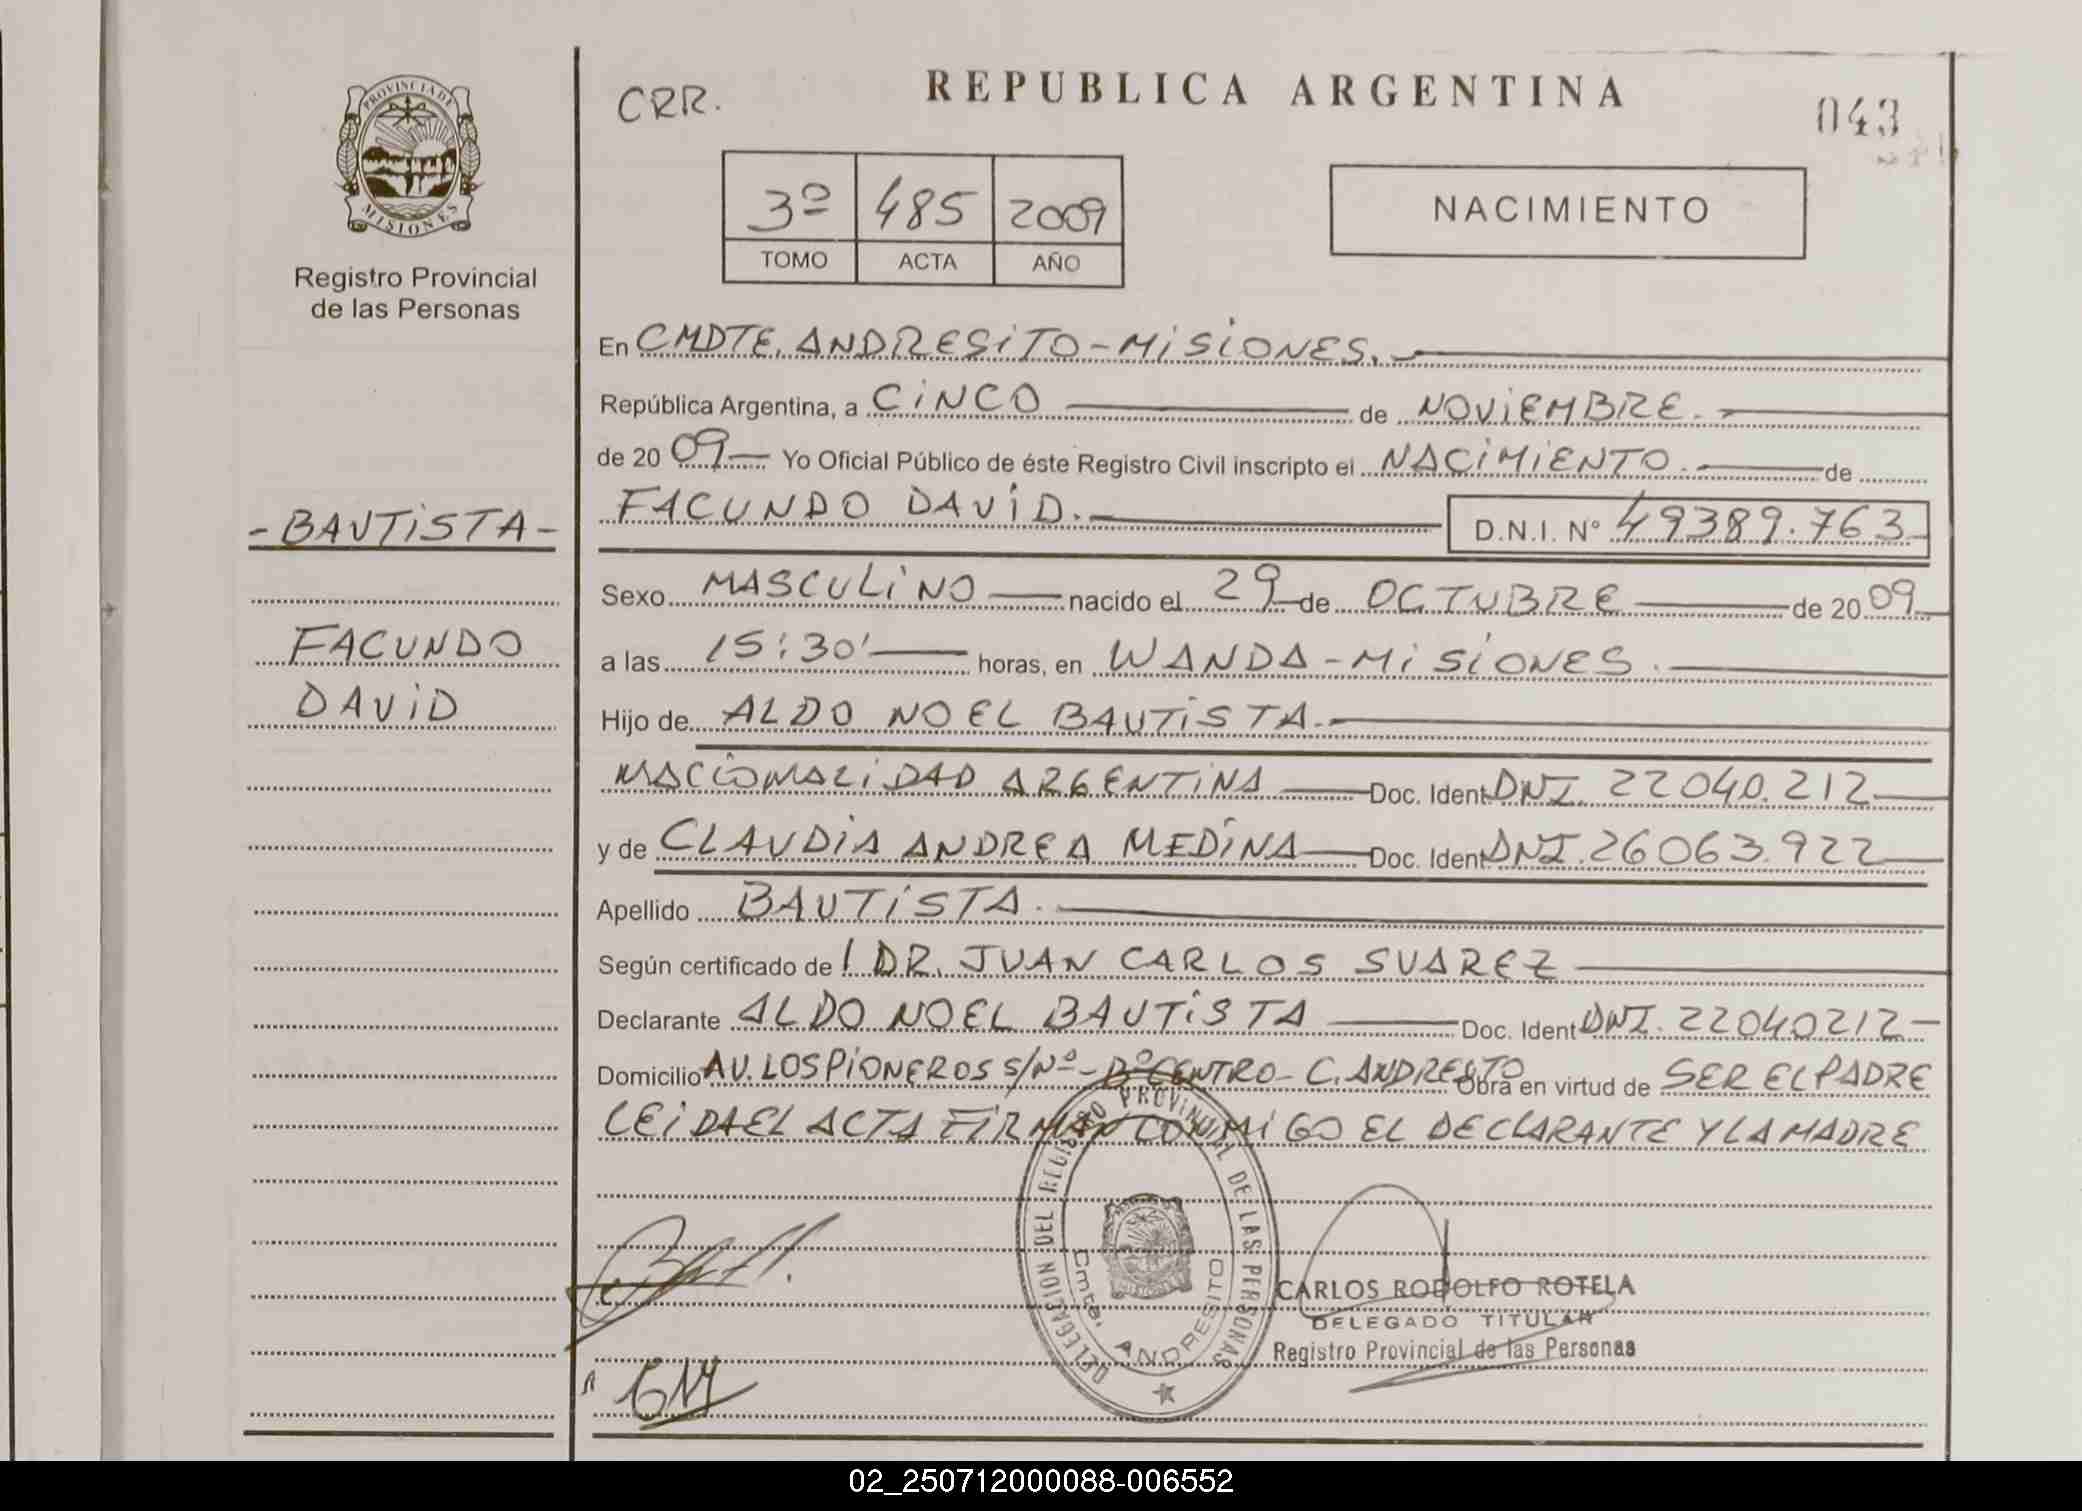 PROVINCIA DE
MISIONES
Registro Provincial
de las Personas
- BAUTISTA -
FACUNDO
DAVID
CRR.
REPUBLICA ARGENTINA
043
3º 485 2009
TOMO ACTA AÑO
NACIMIENTO
En CMDTE. ANDRESITO - MISIONES.
República Argentina, a CINCO de NOVIEMBRE.
de 2009 Yo Oficial Público de éste Registro Civil inscripto el NACIMIENTO. de
FACUNDO DAVID. D.N.I. Nº 49389.763
Sexo MASCULINO nacido el 29 de OCTUBRE de 2009
a las 15:30' horas, en WANDA - MISIONES.
Hijo de ALDO NOEL BAUTISTA.
NACIONALIDAD ARGENTINA Doc. Ident DNI. 22040.212
y de CLAUDIA ANDREA MEDINA Doc. Ident DNI. 26063.922
Apellido BAUTISTA.
Según certificado de DR. JUAN CARLOS SUAREZ
Declarante ALDO NOEL BAUTISTA Doc. Ident DNI. 22040212
Domicilio AV. LOS PIONEROS S/Nº - Bº CENTRO - C. ANDRESITO Obra en virtud de SER EL PADRE
LEIDA EL ACTA FIRMAN CONMIGO EL DECLARANTE Y LA MADRE
DELEGACION DEL REGISTRO PROVINCIAL DE LAS PERSONAS
Cmte. ANDRESITO
CARLOS RODOLFO ROTELA
DELEGADO TITULAR
Registro Provincial de las Personas
02_250712000088-006552